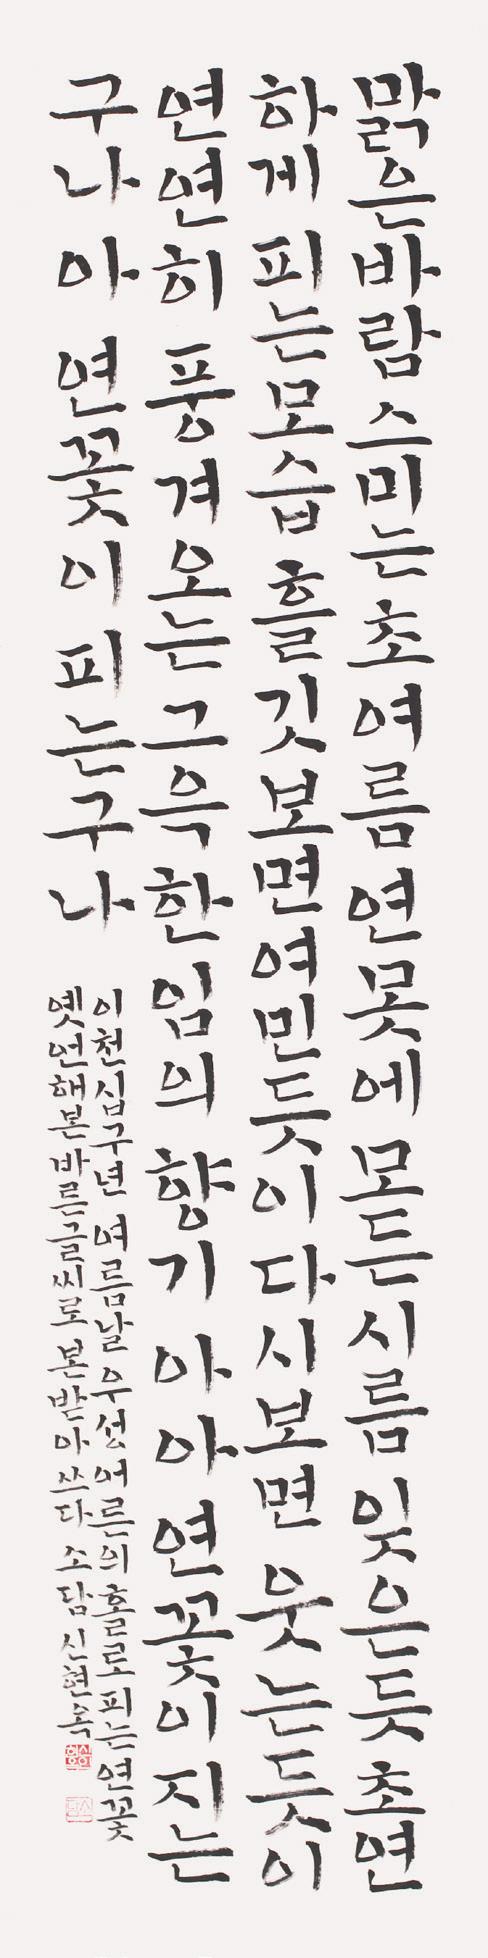 맑은 바람 스미는 초여름 연못에 모든 시름 잊은 듯 초연
하게 피는 모습 흘깃 보면 여민 듯이 다시 보면 웃는 듯이
연연히 풍겨오는 그윽한 임의 향기 아 아 연꽃이 지는
구나 아 연꽃이 피는구나
이천십구년 여름날 우성 어른의 홀로 피는 연꽃
옛 언해본 바른 글씨로 본받아 쓰다 소담 신현옥